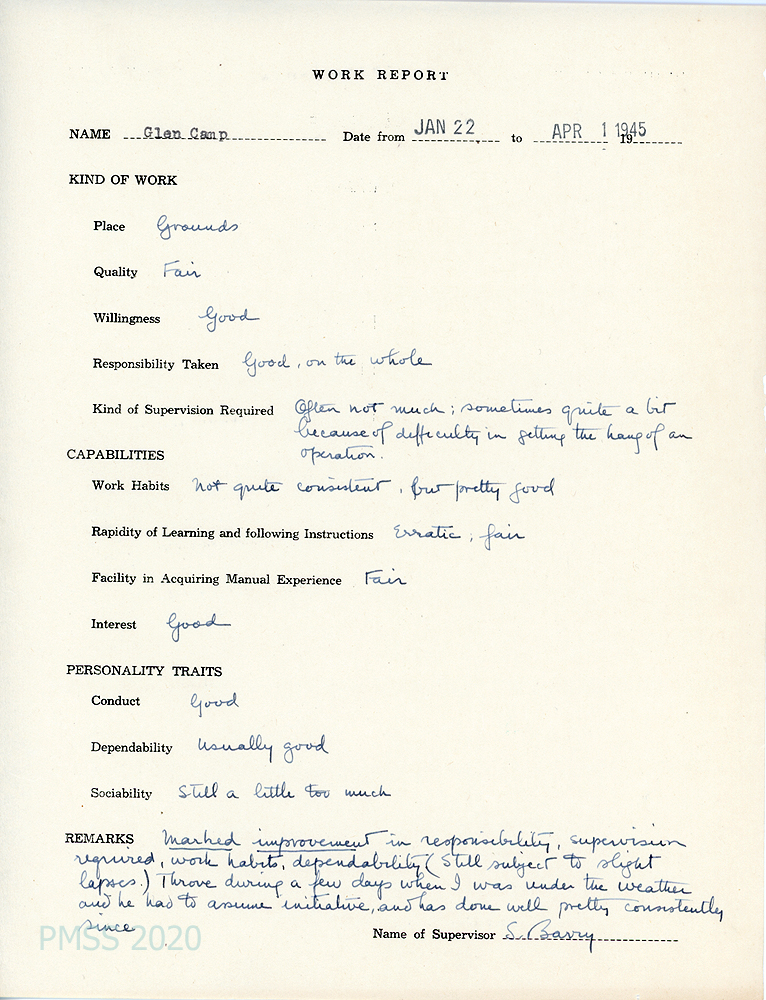 WORK REPORT
NAME Glen Camp Date from JAN 22 to APR 1 1945 19
KIND OF WORK
Place Grounds
Quality Fair
Willingness Good
Responsibility Taken Good, on the whole
Kind of Supervision Required Often not much; sometimes quite a bit
because of difficulty in getting the hang of an
operation.
CAPABILITIES
Work Habits Not quite consistent, but pretty good
Rapidity of Learning and following Instructions Erratic; fair
Facility in Acquiring Manual Experience Fair
Interest Good
PERSONALITY TRAITS
Conduct Good
Dependability Usually good
Sociability Still a little too much
REMARKS Marked improvement in responsibility, supervision
required, work habits, dependability (Still subject to slight
lapses.) Throve during a few days when I was under the weather
and he had to assume initiative, and has done well pretty consistently
since
Name of Supervisor S. Barry
PMSS 2020